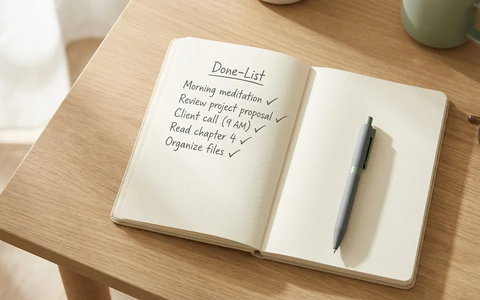 Done-List
Morning meditation ✓
Review project proposal ✓
Client call (9 AM) ✓
Read chapter 4 ✓
Organize files ✓